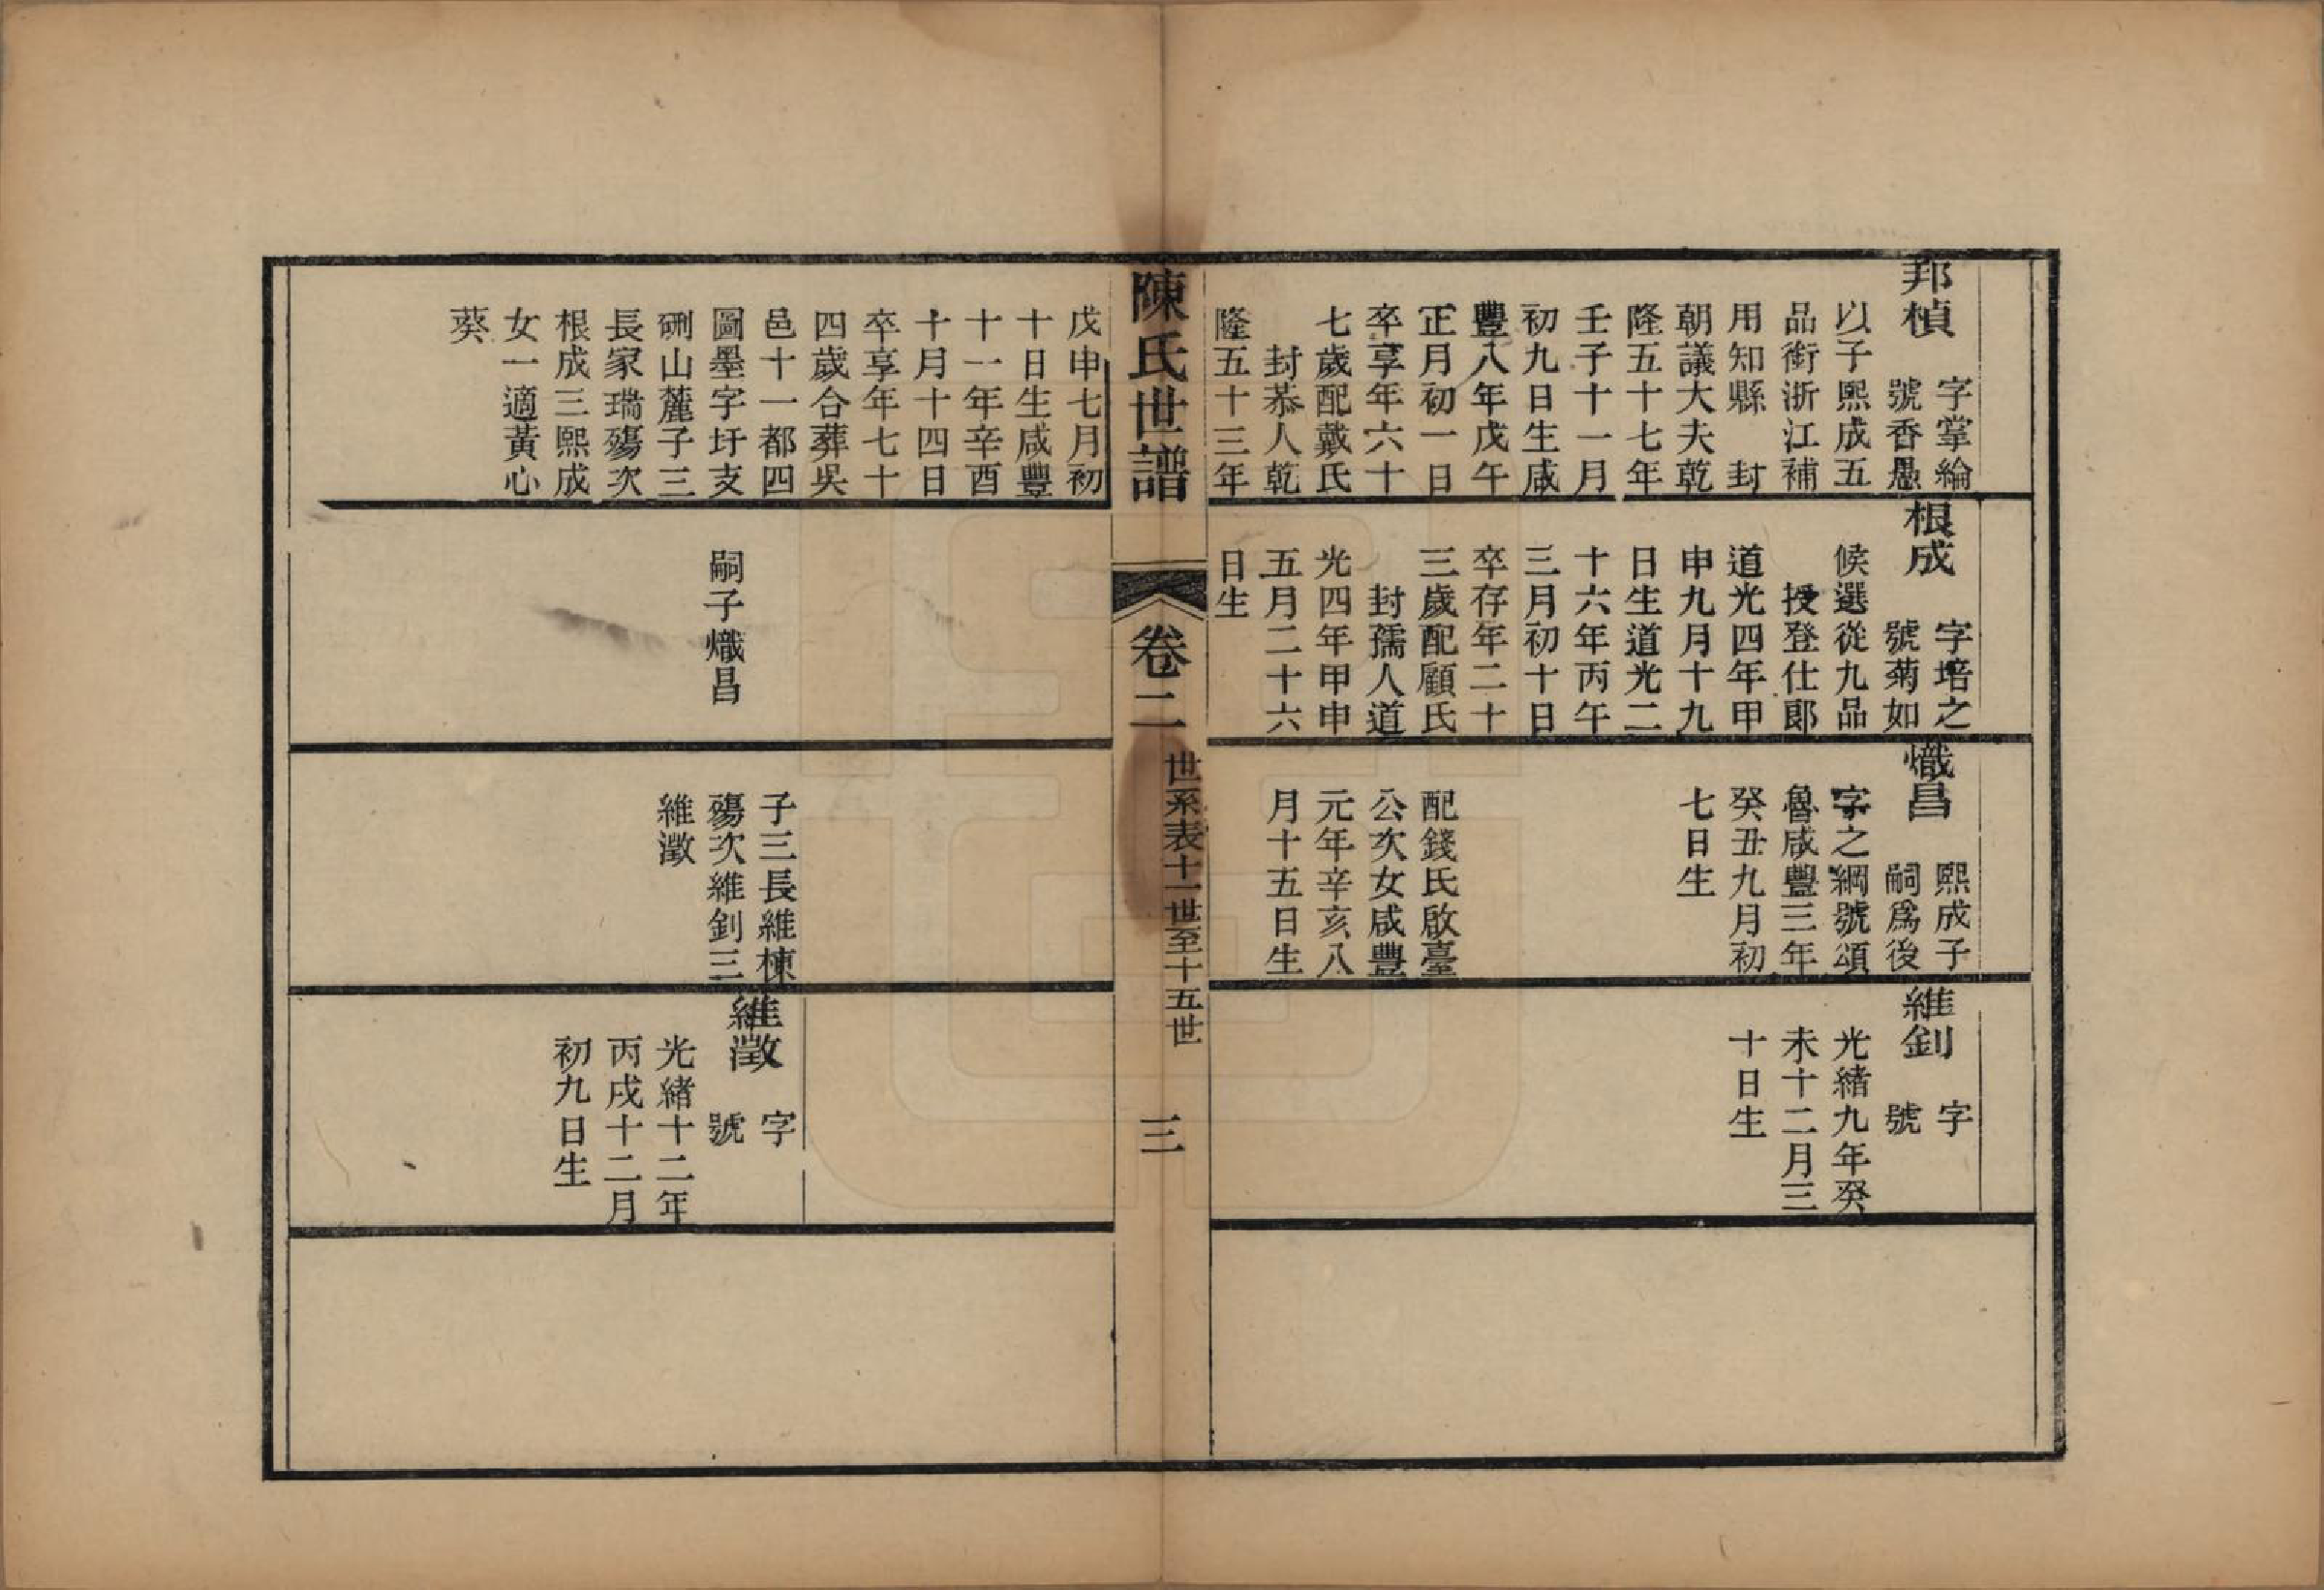 邦楨
字掌綸
號香愚
以子熙成五
品銜浙江補
用知縣　封
朝議大夫乾
隆五十七年
壬子十一月
初九日生咸
豐八年戊午
正月初一日
卒享年六十
七歲配戴氏
封恭人乾
隆五十三年
根成
字培之
號菊如
候選從九品
授登仕郎
道光四年甲
申九月十九
日生道光二
十六年丙午
三月初十日
卒存年二十
三歲配顧氏
封孺人道
光四年甲申
五月二十六
日生
熾昌
熙成子
嗣爲後
字之綱號頌
魯咸豐三年
癸丑九月初
七日生
配錢氏啟臺
公次女咸豐
元年辛亥八
月十五日生
維釗
字
號
光緒九年癸
未十二月三
十日生
陳氏世譜
卷二
世系表十一世至十五世
三
戊申七月初
十日生咸豐
十一年辛酉
十月十四日
卒享年七十
四歲合葬吳
邑十一都四
圖墨字圩支
硎山麓子三
長家瑞殤次
根成三熙成
女一適黃心
葵
嗣子熾昌
子三長維棟
殤次維釗三
維澂
維澂
字
號
光緒十二年
丙戌十二月
初九日生